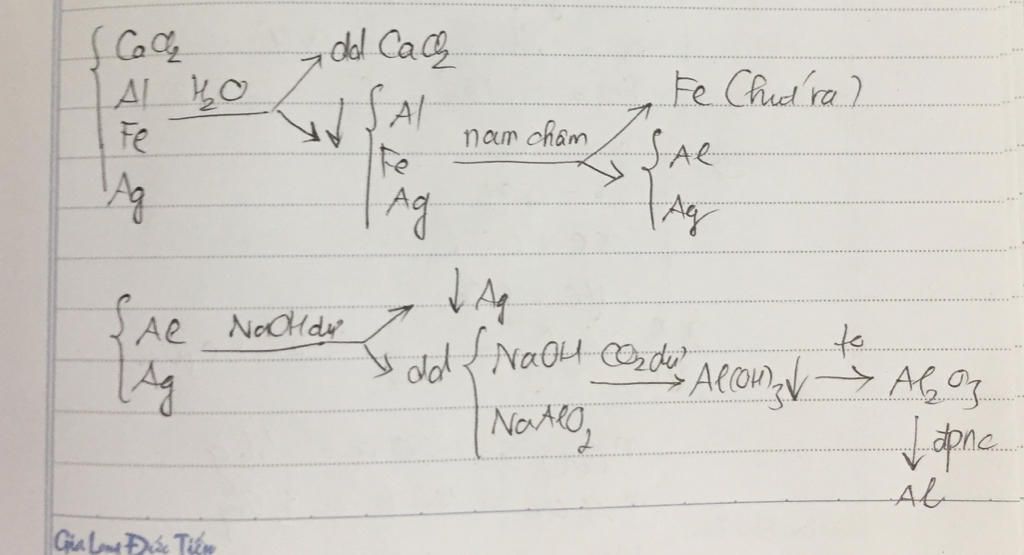 CaCl2
Al
Fe
Ag
H2O
dd CaCl2
↓
Al
Fe
Ag
nam châm
Fe (hút ra)
Al
Ag
Al
Ag
NaOH dư
↓ Ag
dd
NaOH
NaAlO2
CO2 dư
Al(OH)3↓
to
Al2O3
↓ đpnc
Al
Gia Long Đức Tiến